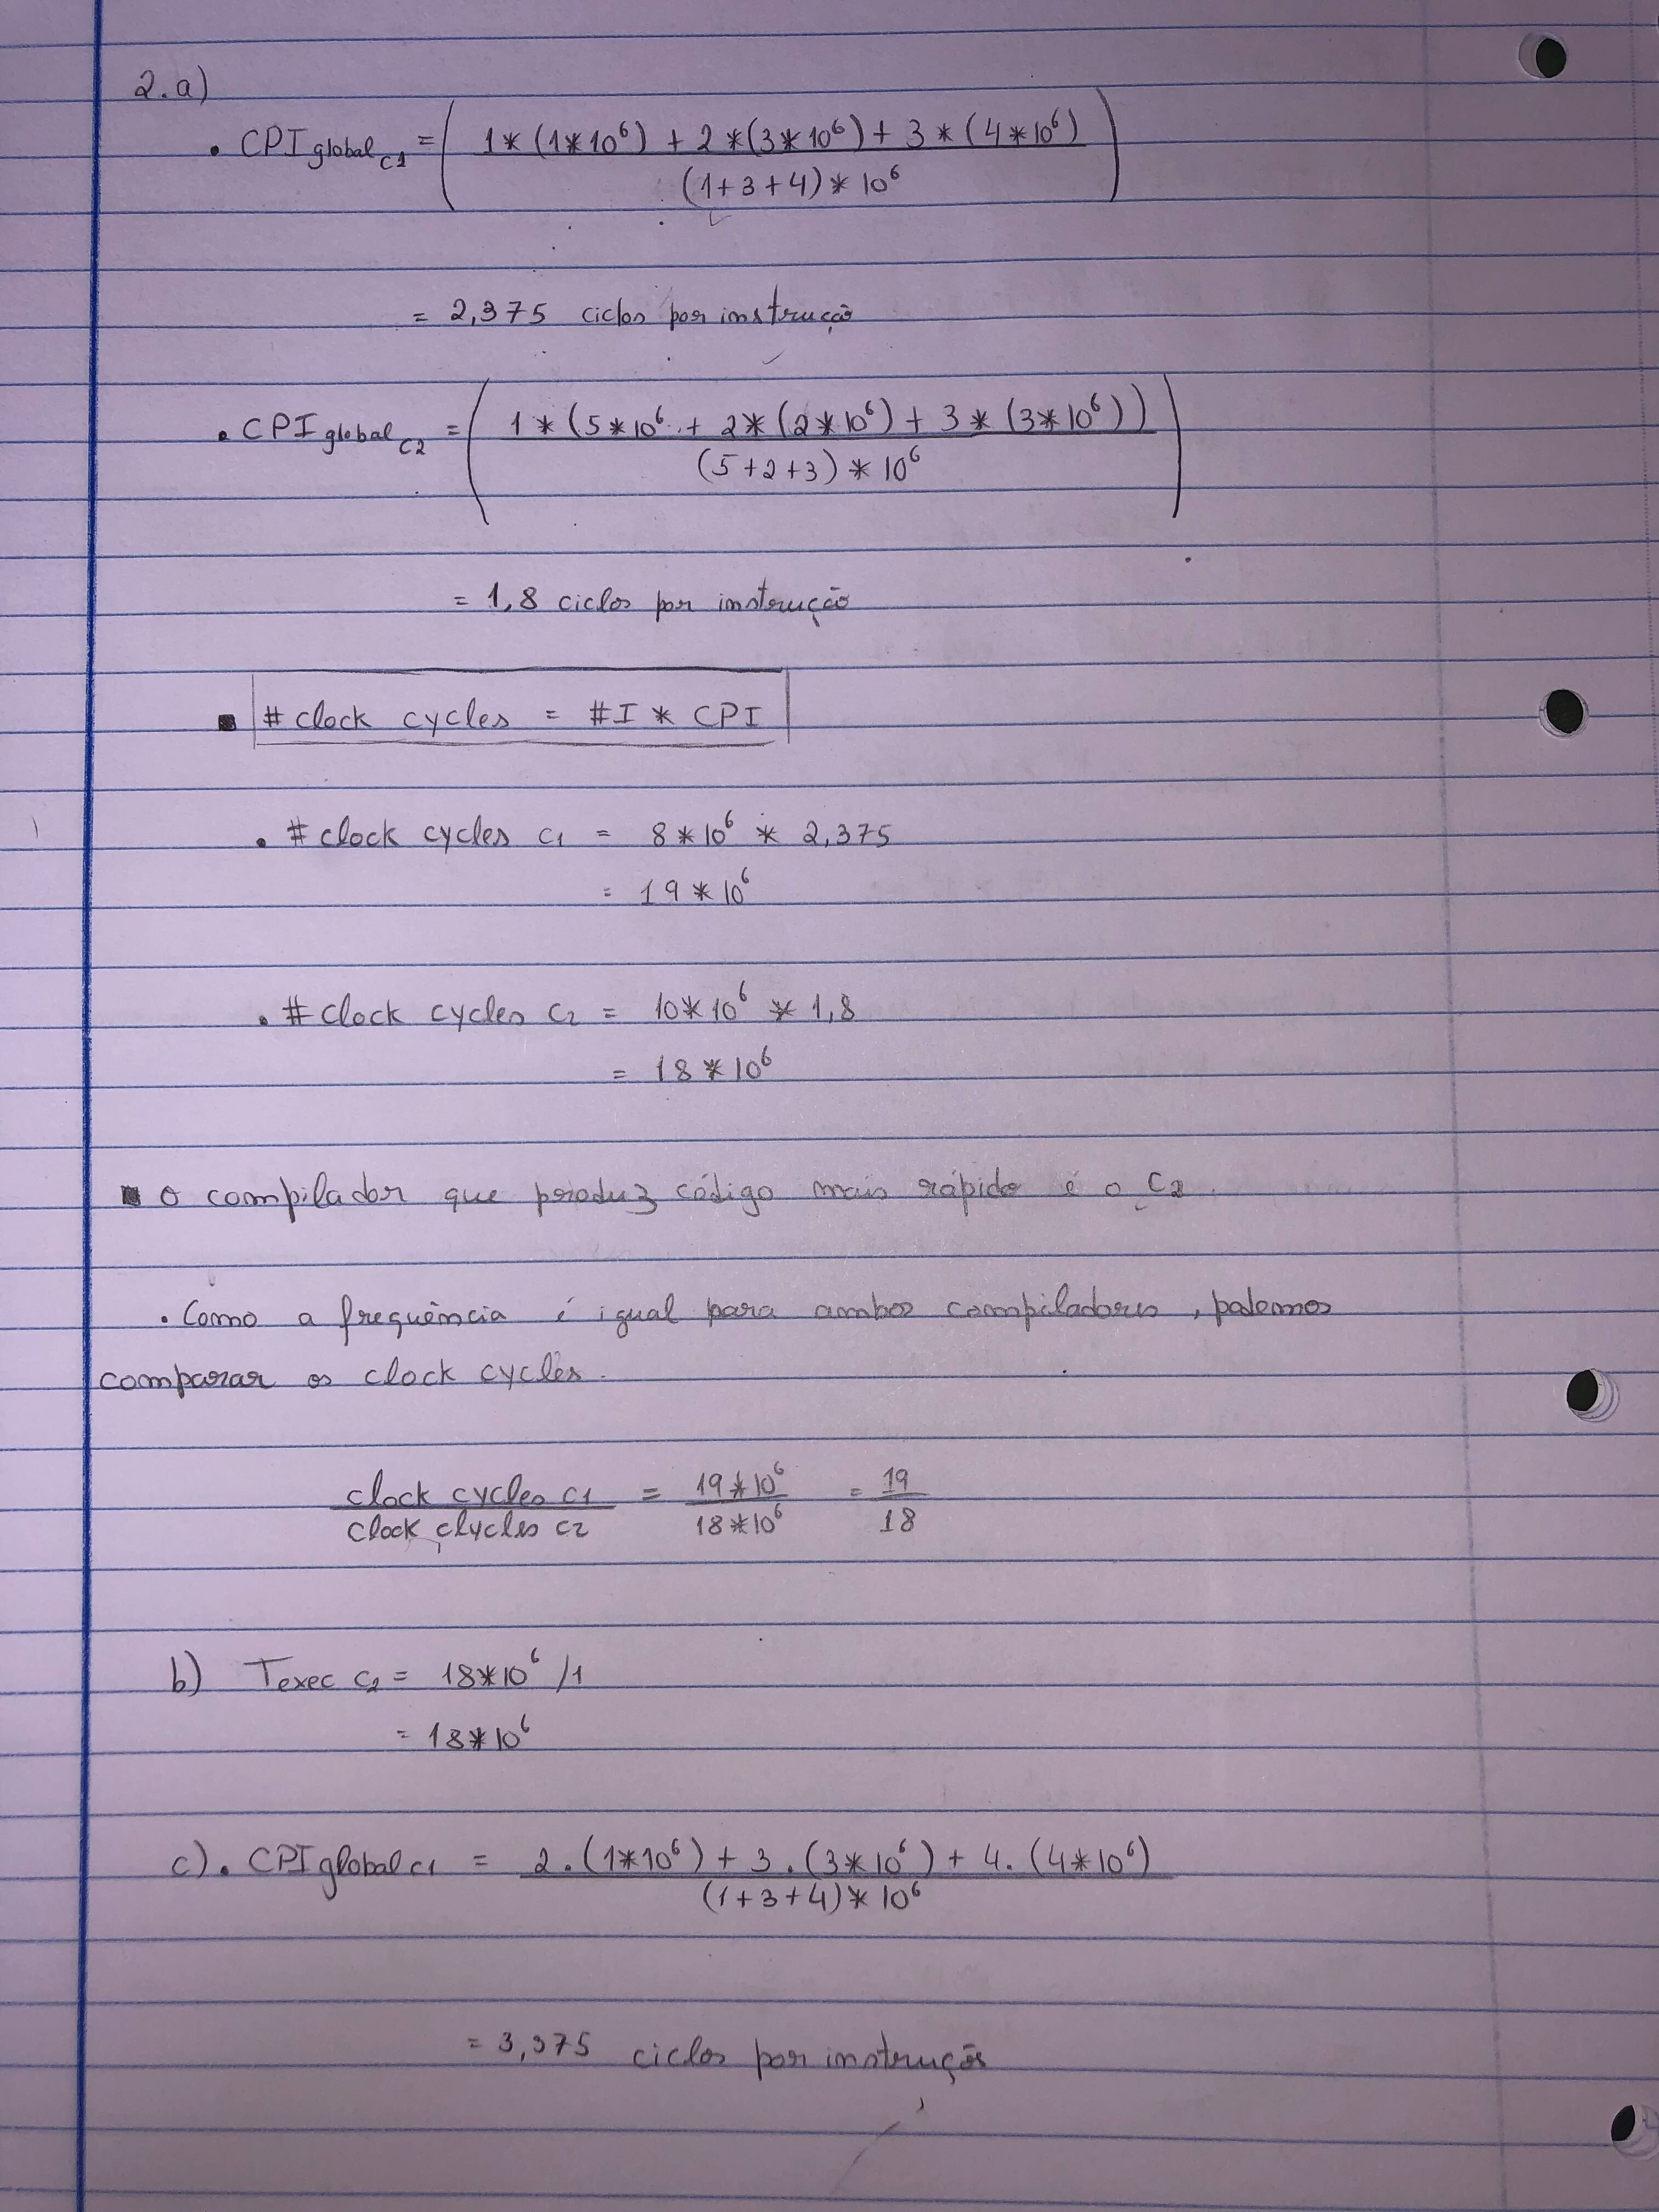 2.a)
• CPI global C1 = ( 1*(1*10⁶) + 2*(3*10⁶) + 3*(4*10⁶)
(1+3+4)*10⁶ )
= 2,375 ciclos por instrução
• CPI global C2 = ( 1*(5*10⁶ + 2*(2*10⁶) + 3*(3*10⁶))
(5+2+3)*10⁶ )
= 1,8 ciclos por instrução
▪ # clock cycles = #I * CPI
• # clock cycles C1 = 8*10⁶ * 2,375
= 19*10⁶
• # clock cycles C2 = 10*10⁶ * 1,8
= 18*10⁶
▪ O compilador que produz código mais rápido é o C2.
• Como a frequência é igual para ambos compiladores, podemos
comparar os clock cycles.
clock cycles C1 = 19*10⁶ = 19
clock clycles C2 18*10⁶ 18
b) Texec C2 = 18*10⁶ /1
= 18*10⁶
c) • CPI global C1 = 2.(1*10⁶) + 3.(3*10⁶) + 4.(4*10⁶)
(1+3+4)*10⁶
= 3,375 ciclos por instrução